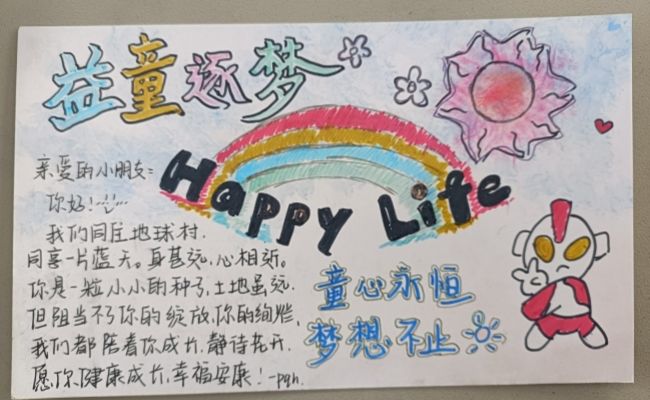 益童逐梦
Happy Life
亲爱的小朋友:
你好!
我们同住地球村.
同享一片蓝天。身甚远,心相近。
你是一粒小小的种子,土地虽远.
但阻当不了你的绽放,你的绚烂,
我们都陪着你成长,静待花开.
愿你健康成长,幸福安康!-pqh.
童心永恒
梦想不止